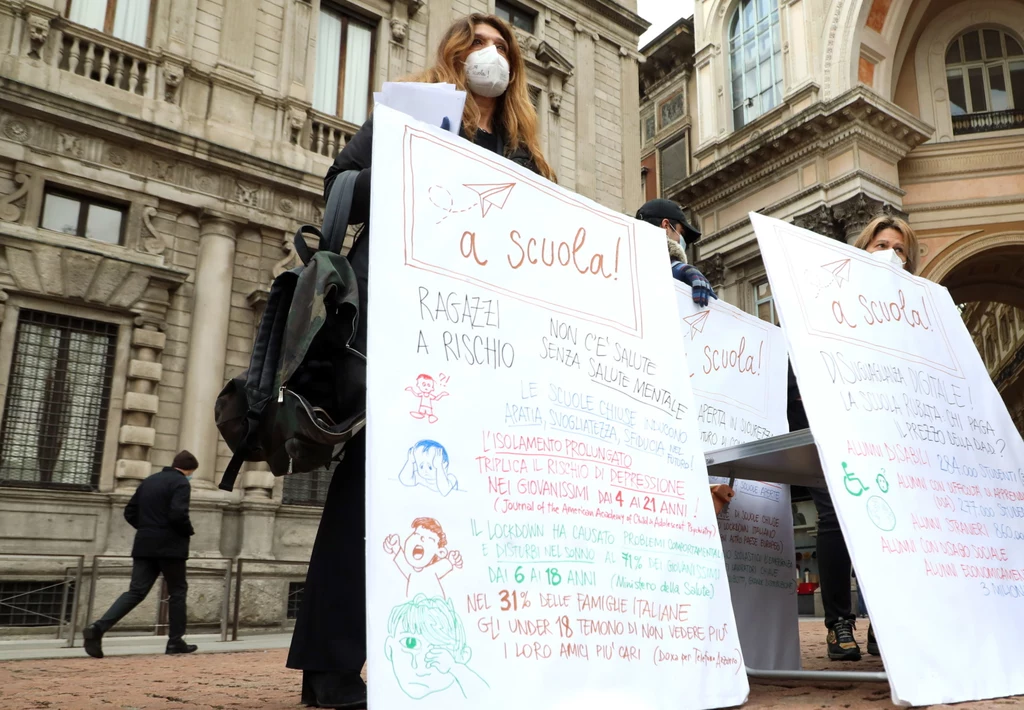 a scuola!
RAGAZZI
A RISCHIO
NON C'E' SALUTE
SENZA SALUTE MENTALE
LE SCUOLE CHIUSE INDUCONO
APATIA, SVOGLIATEZZA, SFIDUCIA NEL
FUTURO!
L'ISOLAMENTO PROLUNGATO
TRIPLICA IL RISCHIO DI DEPRESSIONE
NEI GIOVANISSIMI DAI 4 AI 21 ANNI!
(Journal of the American Academy of Child & Adolescent Psychiatry)
IL LOCKDOWN HA CAUSATO PROBLEMI COMPORTAMENTALI
E DISTURBI NEL SONNO AL 71% DEI GIOVANISSIMI
DAI 6 AI 18 ANNI (Ministero della Salute)
NEL 31% DELLE FAMIGLIE ITALIANE
GLI UNDER 18 TEMONO DI NON VEDERE PIU'
I LORO AMICI PIU' CARI (Doxa per Telefono Azzurro)
a scuola!
APERTA IN SICUREZZA
DI SCUOLE CHIUSE
LOCKDOWN ITALIANO
ALTRO PAESE EUROPEO)
a scuola!
DISUGUAGLIANZA DIGITALE!
LA SCUOLA RUBATA CHI PAGA
IL PREZZO DELLA DAD?
ALUNNI DISABILI 284.000 STUDENTI
ALUNNI CON DIFFICOLTÀ DI
(DSA) 277.000 STUDENTI
ALUNNI STRANIERI 860.000
ALUNNI CON DISAGIO SOCIALE
ALUNNI ECONOMICAMENTE
3 MILIONI